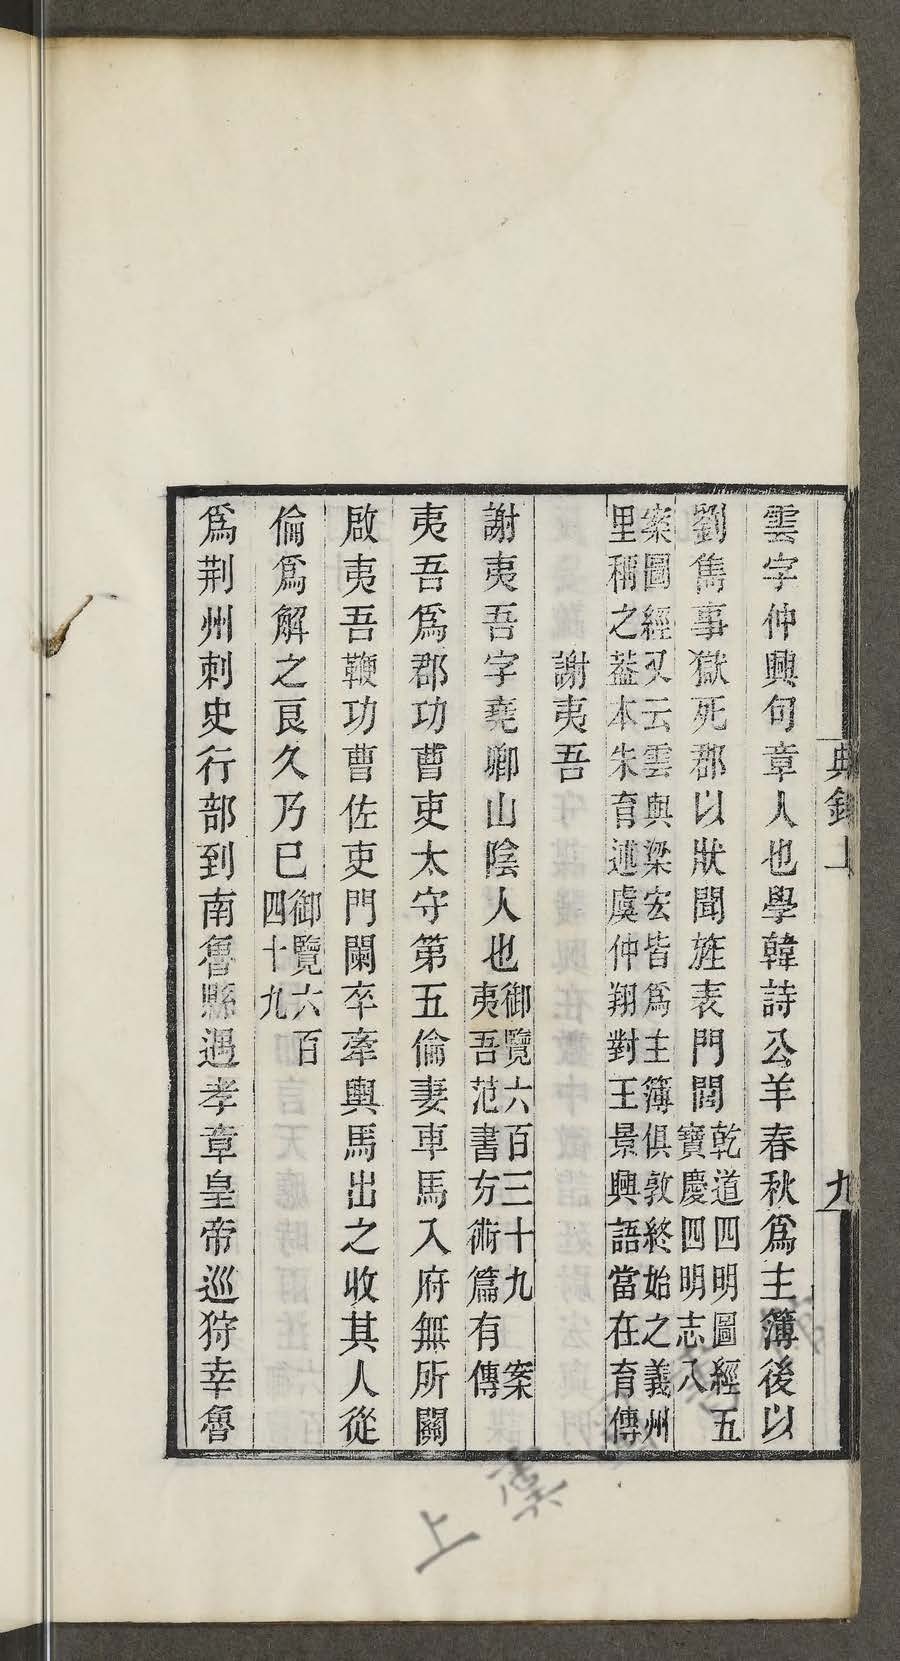 典錄上
九
雲字仲興句章人也學韓詩公羊春秋爲主簿後以
劉雋事獄死郡以狀聞旌表門閭乾道四明圖經五
寶慶四明志八
案圖經又云雲與梁宏皆爲主簿俱敦終始之義州
里稱之葢本朱育述虞仲翔對王景興語當在育傳
謝夷吾
謝夷吾字堯卿山陰人也御覽六百三十九 案
夷吾范書方術篇有傳
夷吾爲郡功曹吏太守第五倫妻車馬入府無所關
啟夷吾鞭功曹佐吏門闌卒牽輿馬出之收其人從
倫爲解之良久乃已御覽六百
四十九
爲荆州刺史行部到南魯縣遇孝章皇帝巡狩幸魯
上虞